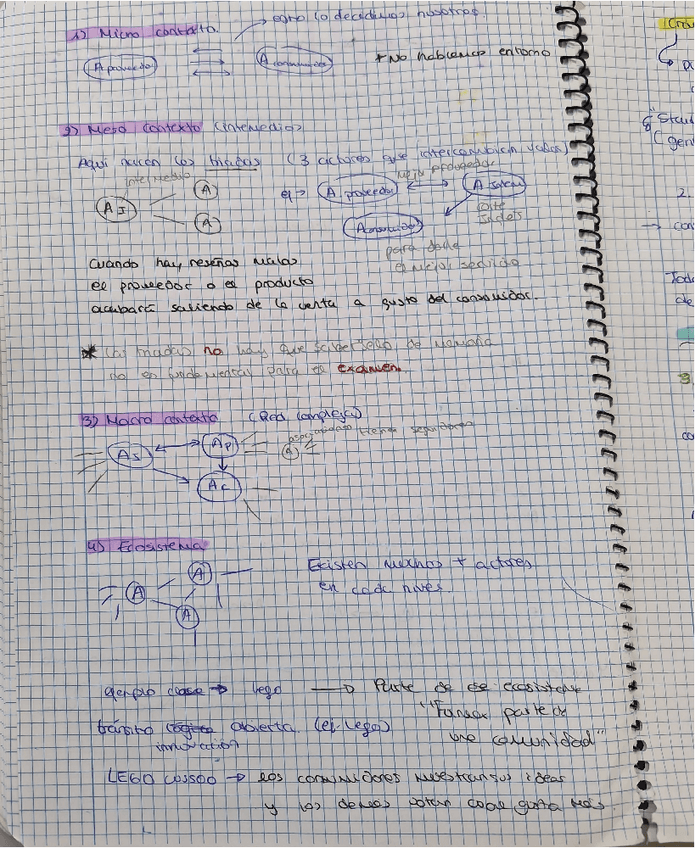 como lo decidimos nosotros.
1) Micro contexto.
A proveedor
A consumidor
+ No hablamos entorno
2) Meso contexto (intermedio)
Aquí nacen las triadas (3 actores que intercambian valor)
intermedio
A I
A
A
ej →
A proveedor
A Intern
A consumidor
para darle
el mejor servicio
Cuando hay reseñas malas
el proveedor o el producto
acabará saliendo de la venta a gusto del consumidor.
* Las triadas no hay que saberselo de memoria
no es fundamental para el examen.
3) Macro contexto (Red compleja)
AI
AP
A
tienen seguidores
AC
4) Ecosistema
A
A
A
Existen muchos + actores
en cada nivel.
ejemplo clase → Lego → Parte de ese ecosistema
"Formar parte de
una comunidad"
tránsito abierta (ej. Lego)
innovación
LEGO CUSSOO → los consumidores muestran sus ideas
y los demás votan cual gusta más